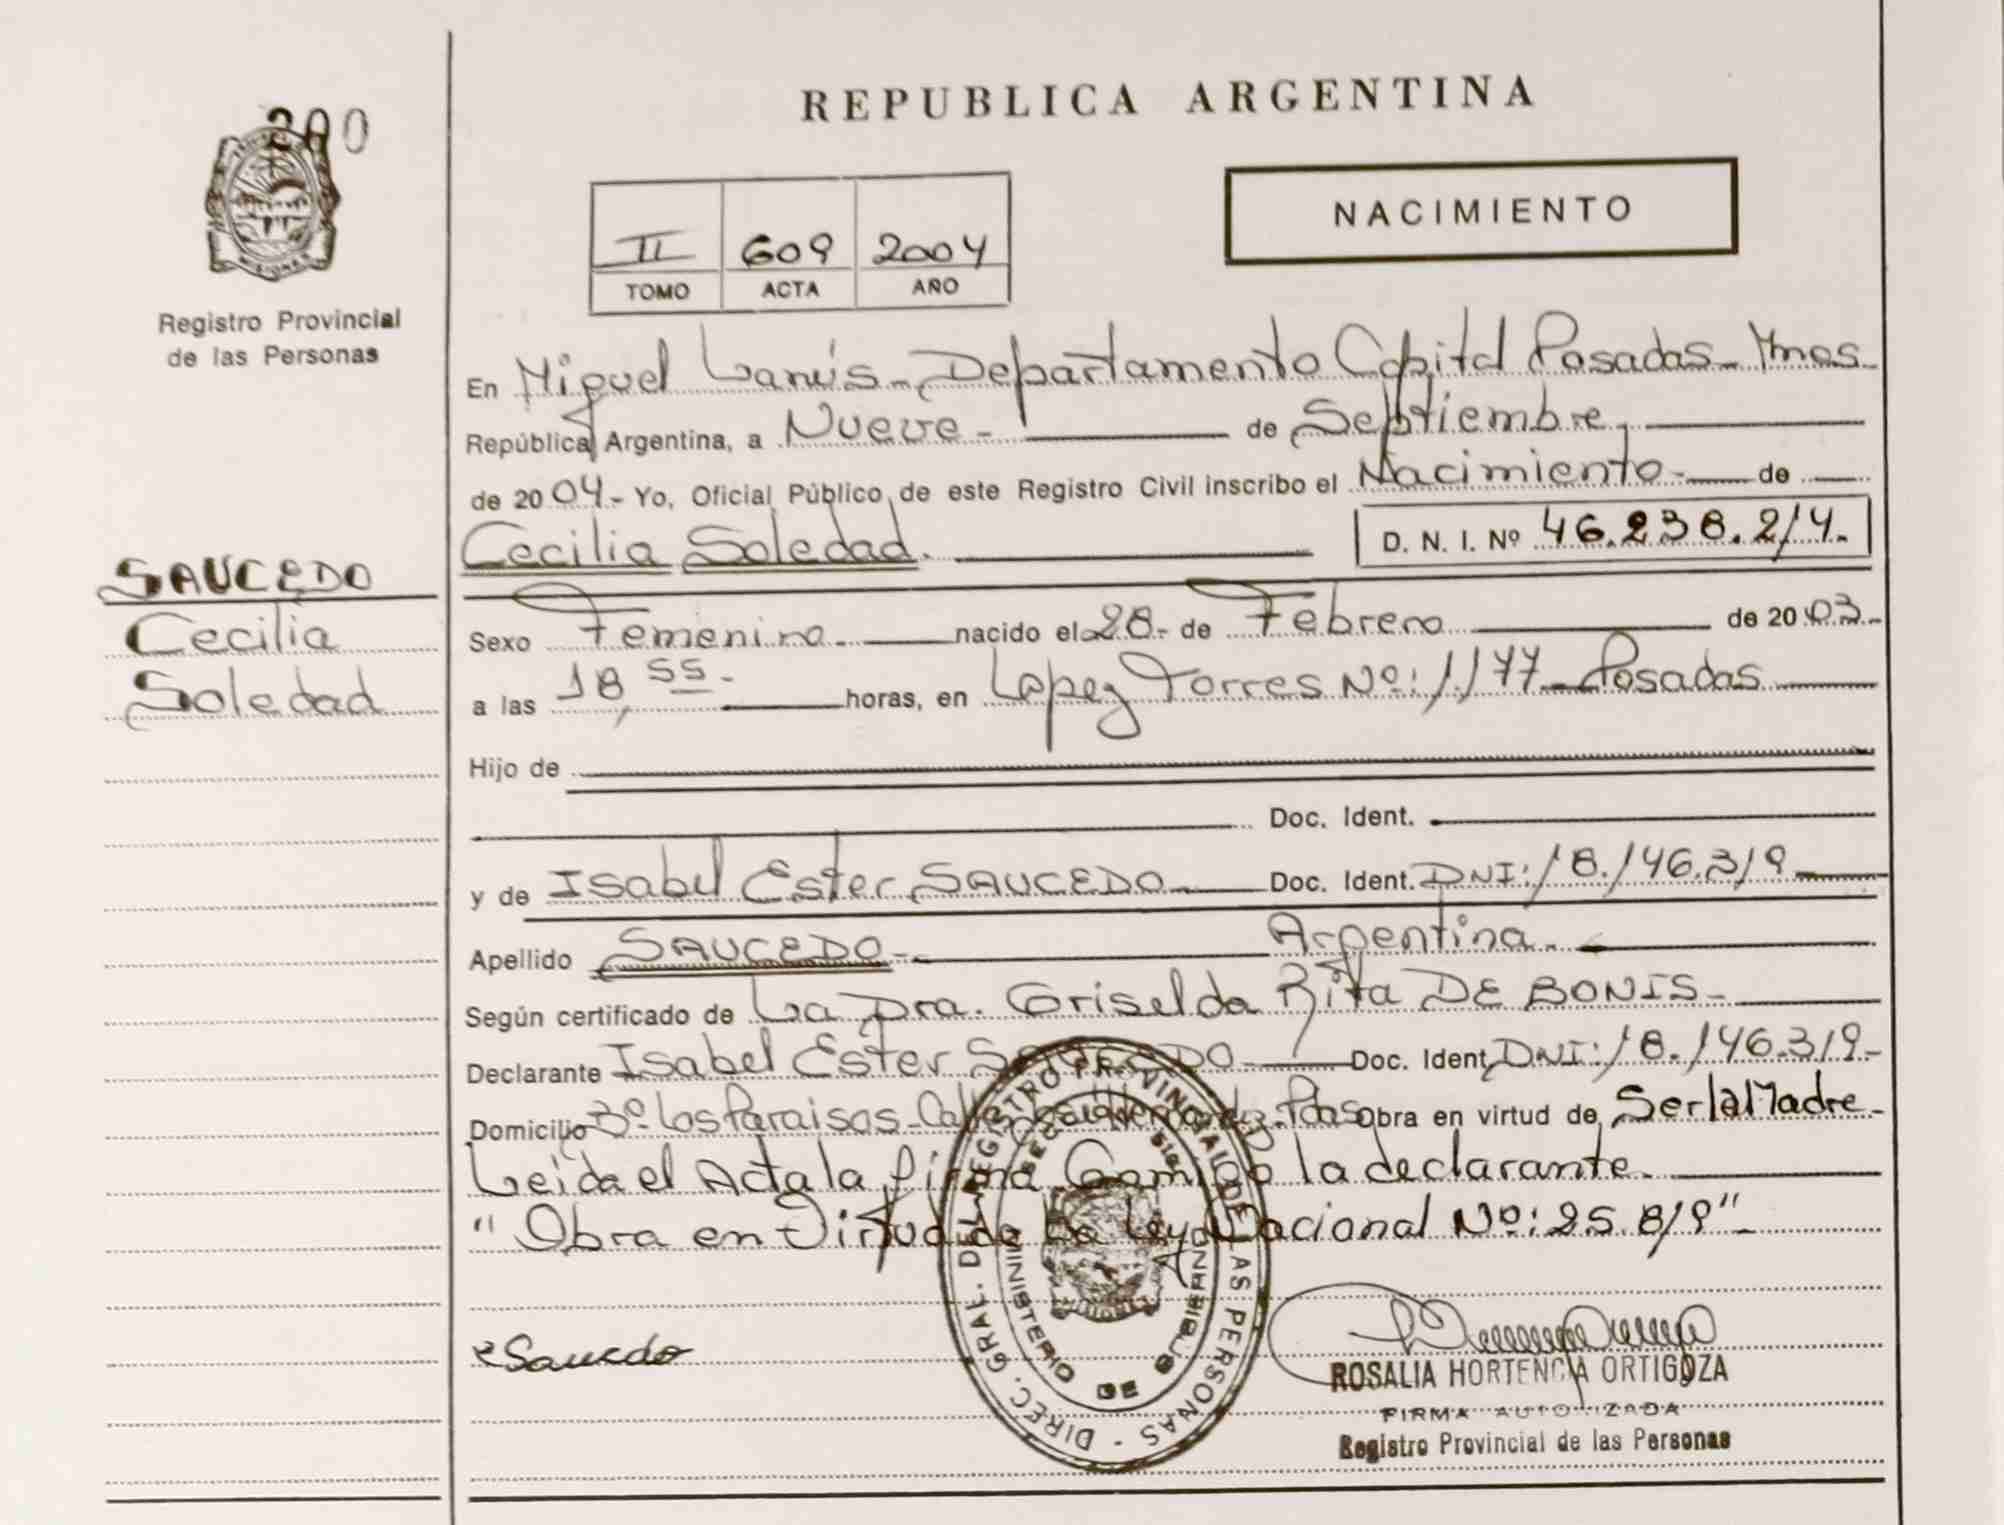 REPUBLICA ARGENTINA
200
MISIONES
Registro Provincial
de las Personas
II 609 2004
TOMO ACTA AÑO
NACIMIENTO
En Miguel Lanús - Departamento Capital Posadas - Mnes.
República Argentina, a Nueve - de Septiembre,
de 2004.- Yo, Oficial Público de este Registro Civil inscribo el Nacimiento - de
Cecilia Soledad. D. N. I. Nº 46.238.214.-
SAUCEDO
Cecilia
Soledad
Sexo Femenino - nacido el 28.- de Febrero de 2003.-
a las 18,55 - horas, en Lopez Torres Nº: 1.177 - Posadas
Hijo de
Doc. Ident.
y de Isabel Ester SAUCEDO Doc. Ident. DNI: 18.146.319
Apellido SAUCEDO - Argentina.
Según certificado de La Dra. Griselda Rita DE BONIS -
Declarante Isabel Ester SAUCEDO - Doc. Ident. DNI: 18.146.319-
Domicilio Bº Los Paraisos - Pdas Obra en virtud de Ser la Madre -
Leida el Acta la firma Conmigo la declarante.
" Obra en Virtud de La Ley Nacional Nº: 25.819" -
DIREC. GRAL. DEL REGISTRO PROVINCIAL DE LAS PERSONAS -
MINISTERIO DE GOBIERNO
Saucedo
ROSALIA HORTENCIA ORTIGOZA
FIRMA AUTORIZADA
Registro Provincial de las Personas